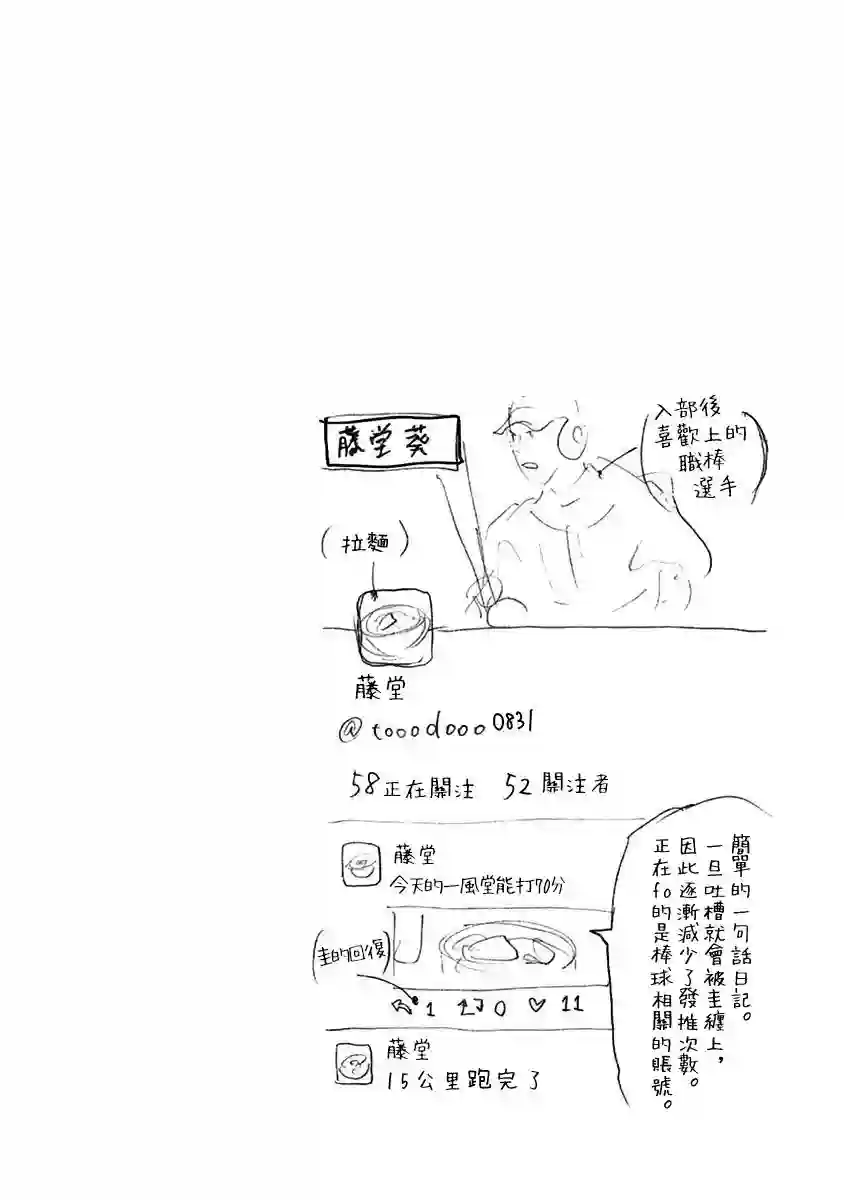 藤堂葵
入部後
喜歡上的
職棒
選手
(拉麵)
藤堂
@tooodooo0831
58正在關注 52關注者
藤堂
今天的一風堂能打70分
(圭的回復)
1 0 11
藤堂
15公里跑完了
簡單的一句話日記。
一旦吐槽就會被圭纏上，
因此逐漸減少了發推次數。
正在fo的是棒球相關的賬號。